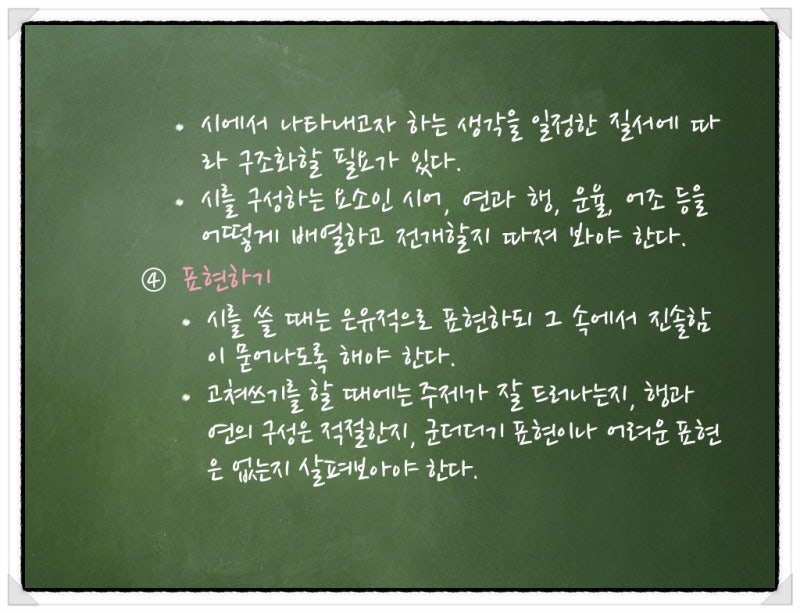 • 시에서 나타내고자 하는 생각을 일정한 질서에 따
라 구조화할 필요가 있다.
• 시를 구성하는 요소인 시어, 연과 행, 운율, 어조 등을
어떻게 배열하고 전개할지 따져 봐야 한다.
④ 표현하기
• 시를 쓸 때는 은유적으로 표현하되 그 속에서 진솔함
이 묻어나도록 해야 한다.
• 고쳐쓰기를 할 때에는 주제가 잘 드러나는지, 행과
연의 구성은 적절한지, 군더더기 표현이나 어려운 표현
은 없는지 살펴보아야 한다.